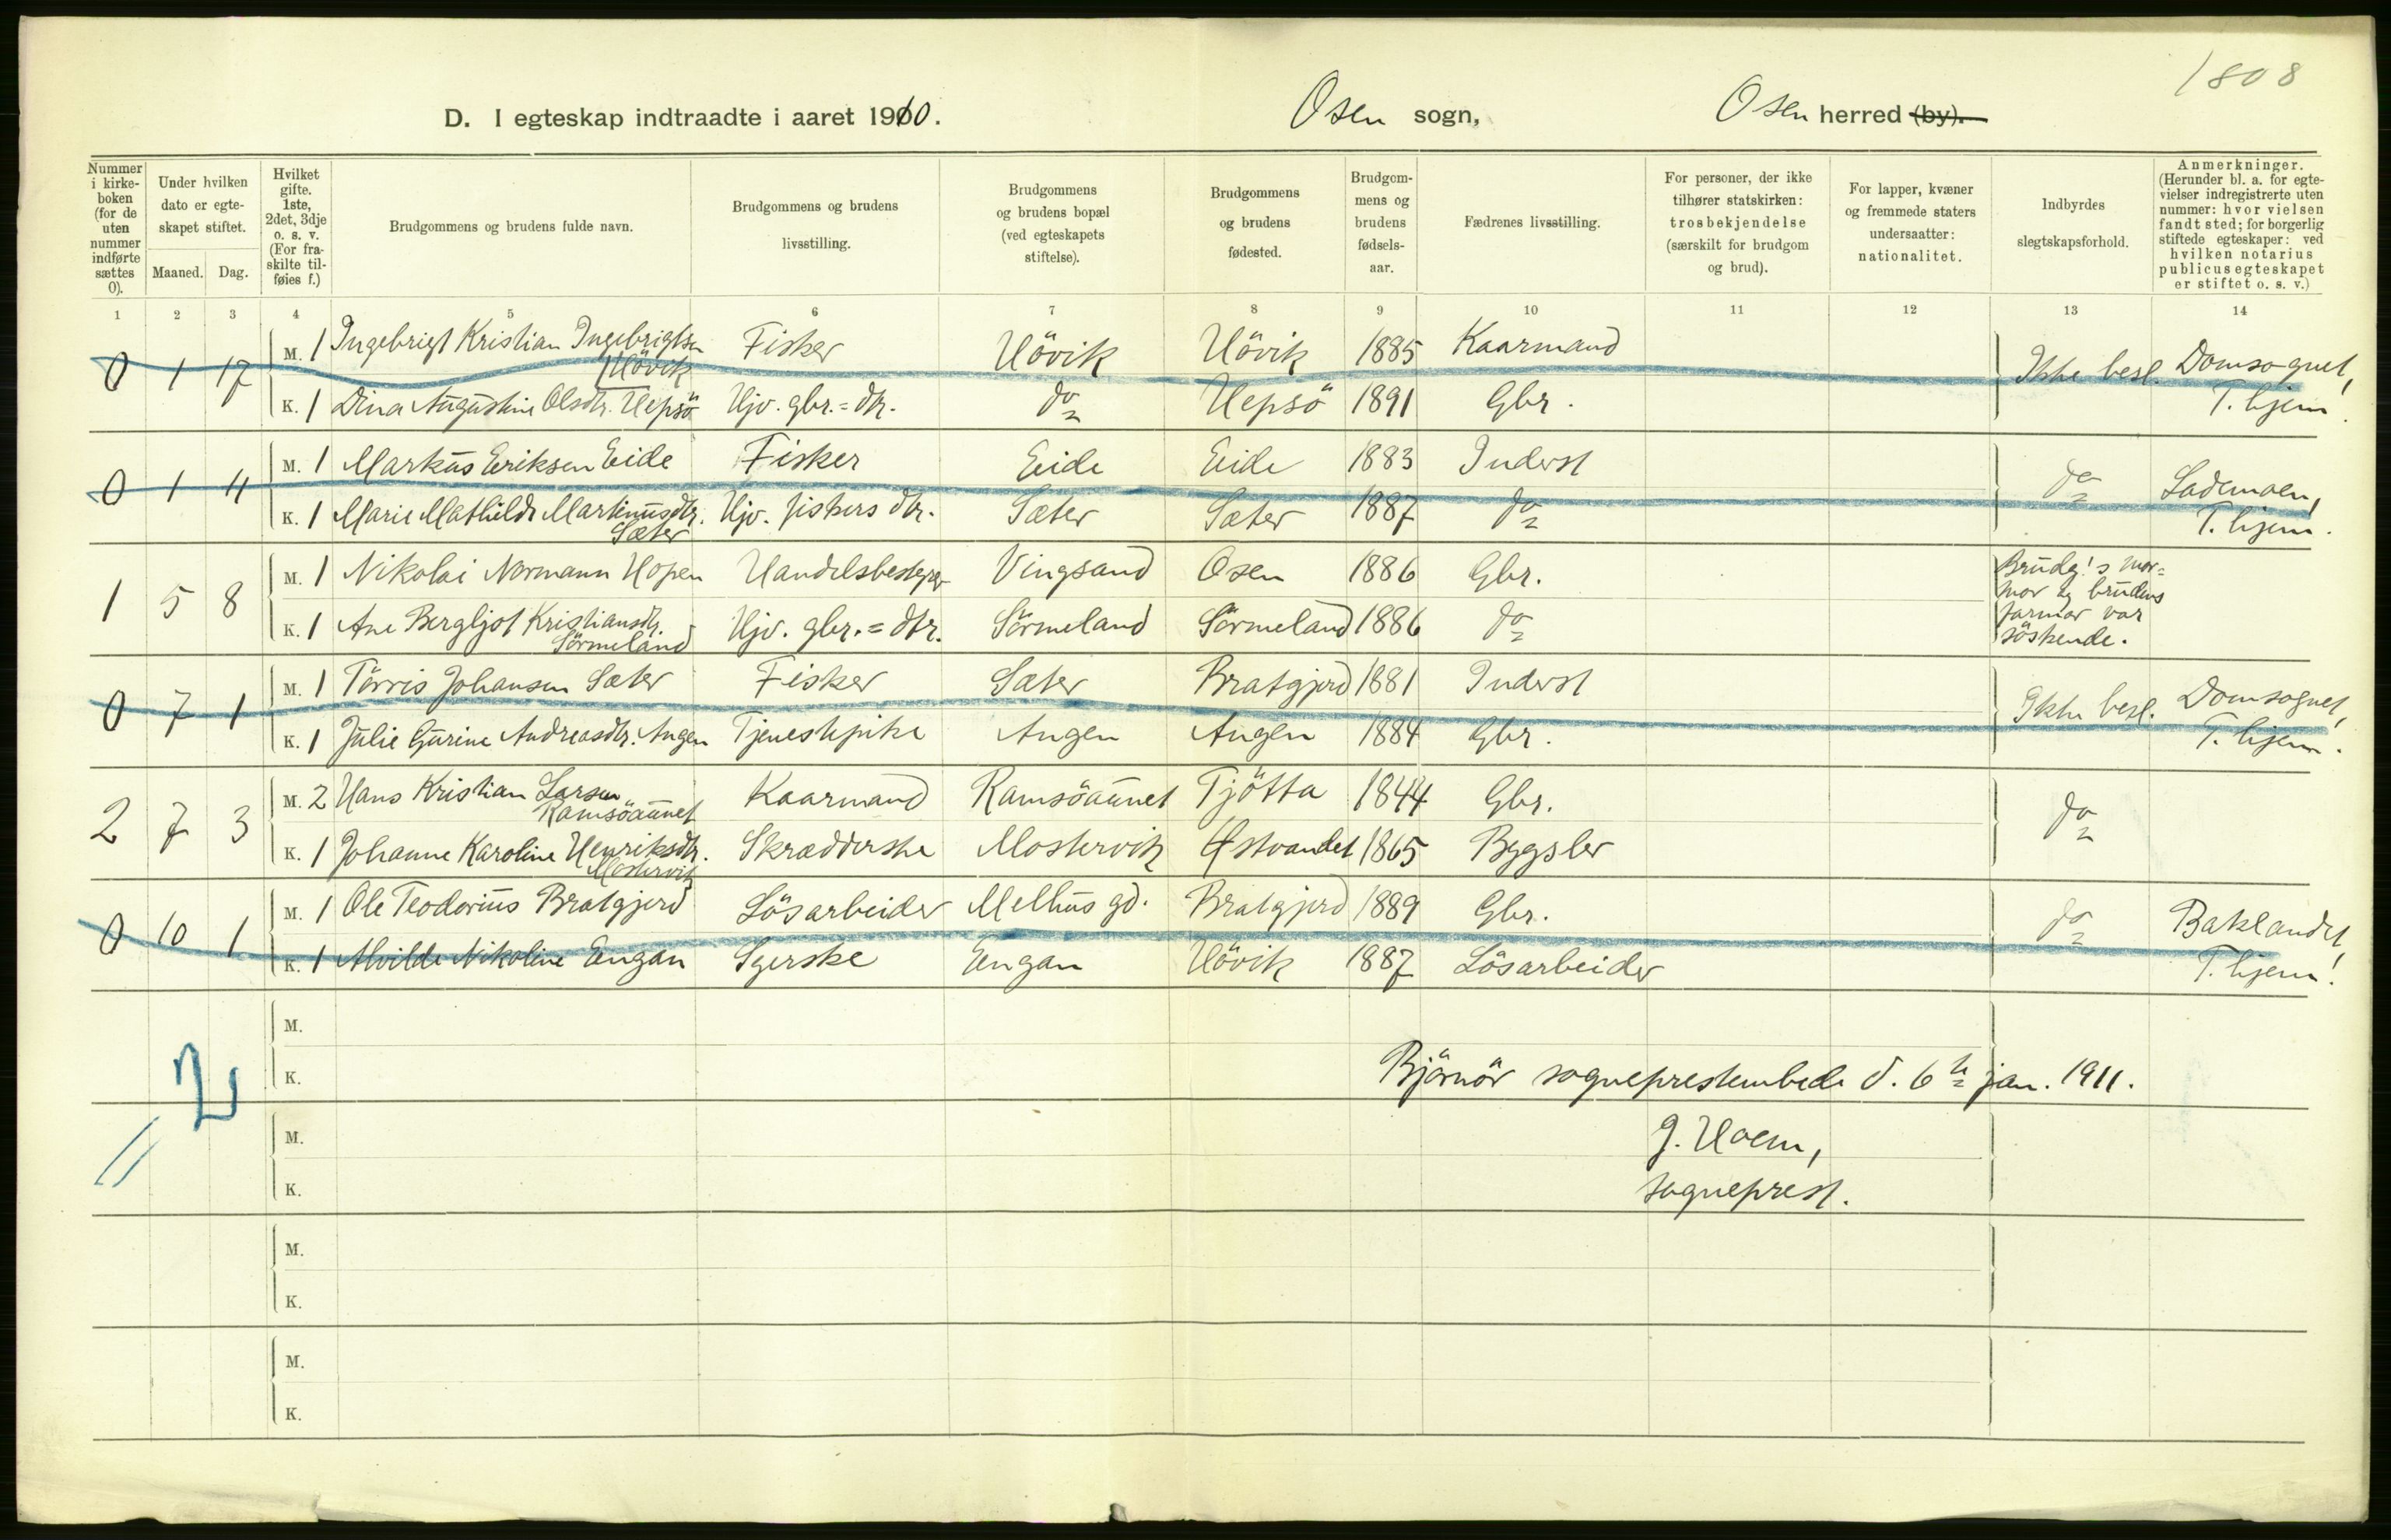 1808
D. I egteskap indtraadte i aaret 1910. Osen sogn, Osen herred (by).
Nummer i kirke-boken (for de uten nummer indførte sættes 0).
Under hvilken dato er egte-skapet stiftet.
Maaned. Dag.
Hvilket gifte. 1ste, 2det, 3dje o. s. v. (For fra-skilte til-føies f.)
Brudgommens og brudens fulde navn.
Brudgommens og brudens livsstilling.
Brudgommens og brudens bopæl (ved egteskapets stiftelse).
Brudgommens og brudens fødested.
Brudgom-mens og brudens fødsels-aar.
Fædrenes livsstilling.
For personer, der ikke tilhører statskirken: trosbekjendelse (særskilt for brudgom og brud).
For lapper, kvæner og fremmede staters undersaatter: nationalitet.
Indbyrdes slegtskapsforhold.
Anmerkninger. (Herunder bl. a. for egte-vielser indregistrerte uten nummer: hvor vielsen fandt sted; for borgerlig stiftede egteskaper: ved hvilken notarius publicus egteskapet er stiftet o. s. v.)
1 2 3 4 5 6 7 8 9 10 11 12 13 14
0 1 17 M. 1 Ingebrigt Kristian Ingebrigtsen Hövik Fisker Hövik Hövik 1885 Kaarmand Ikke besl. Domsognet,
K. 1 Dina Augustine Olsdtr. Hepsö Hjv. gbr.=dtr. do Hepsö 1891 Gbr. T.hjem.
0 1 4 M. 1 Markus Eriksen Eide Fisker Eide Eide 1883 Inderst do Lademoen,
K. 1 Marie Mathilde Martinusdtr. Sæter Hjv. fiskers dtr. Sæter Sæter 1887 do T.hjem.
1 5 8 M. 1 Nikolai Normann Hopen Handelsbestyrer Vingsand Osen 1886 Gbr. Brudg!s mor=
mor og brudens
farmor var
söskende.
K. 1 Ane Bergljot Kristiansdtr. Sörmeland Hjv. gbr.=dtr. Sörmeland Sörmeland 1886 do
0 7 1 M. 1 Törris Johansen Sæter Fisker Sæter Bratgjerd 1881 Inderst Ikke besl. Domsognet,
K. 1 Julie Gurine Andreasdtr. Angen Tjenestepike Angen Angen 1884 Gbr. T.hjem.
2 7 3 M. 2 Hans Kristian Larsen Ramsöaunet Kaarmand Ramsöaunet Tjötta 1844 Gbr. do
K. 1 Johanne Karoline Henriksdtr. Mostervik Skrædderske Mostervik Østvandet 1865 Bygsler
0 10 1 M. 1 Ole Teodorius Bratgjerd Lösarbeider Melhus gd. Bratgjerd 1889 Gbr. do Baklandet
K. 1 Alvilde Nikoline Engan Syerske Engan Hövik 1887 Lösarbeider T.hjem!
M.
2
K. Björnör sogneprestembede d. 6te jan. 1911.
M. J. Hoem,
K. sogneprest.
M.
K.
M.
K.